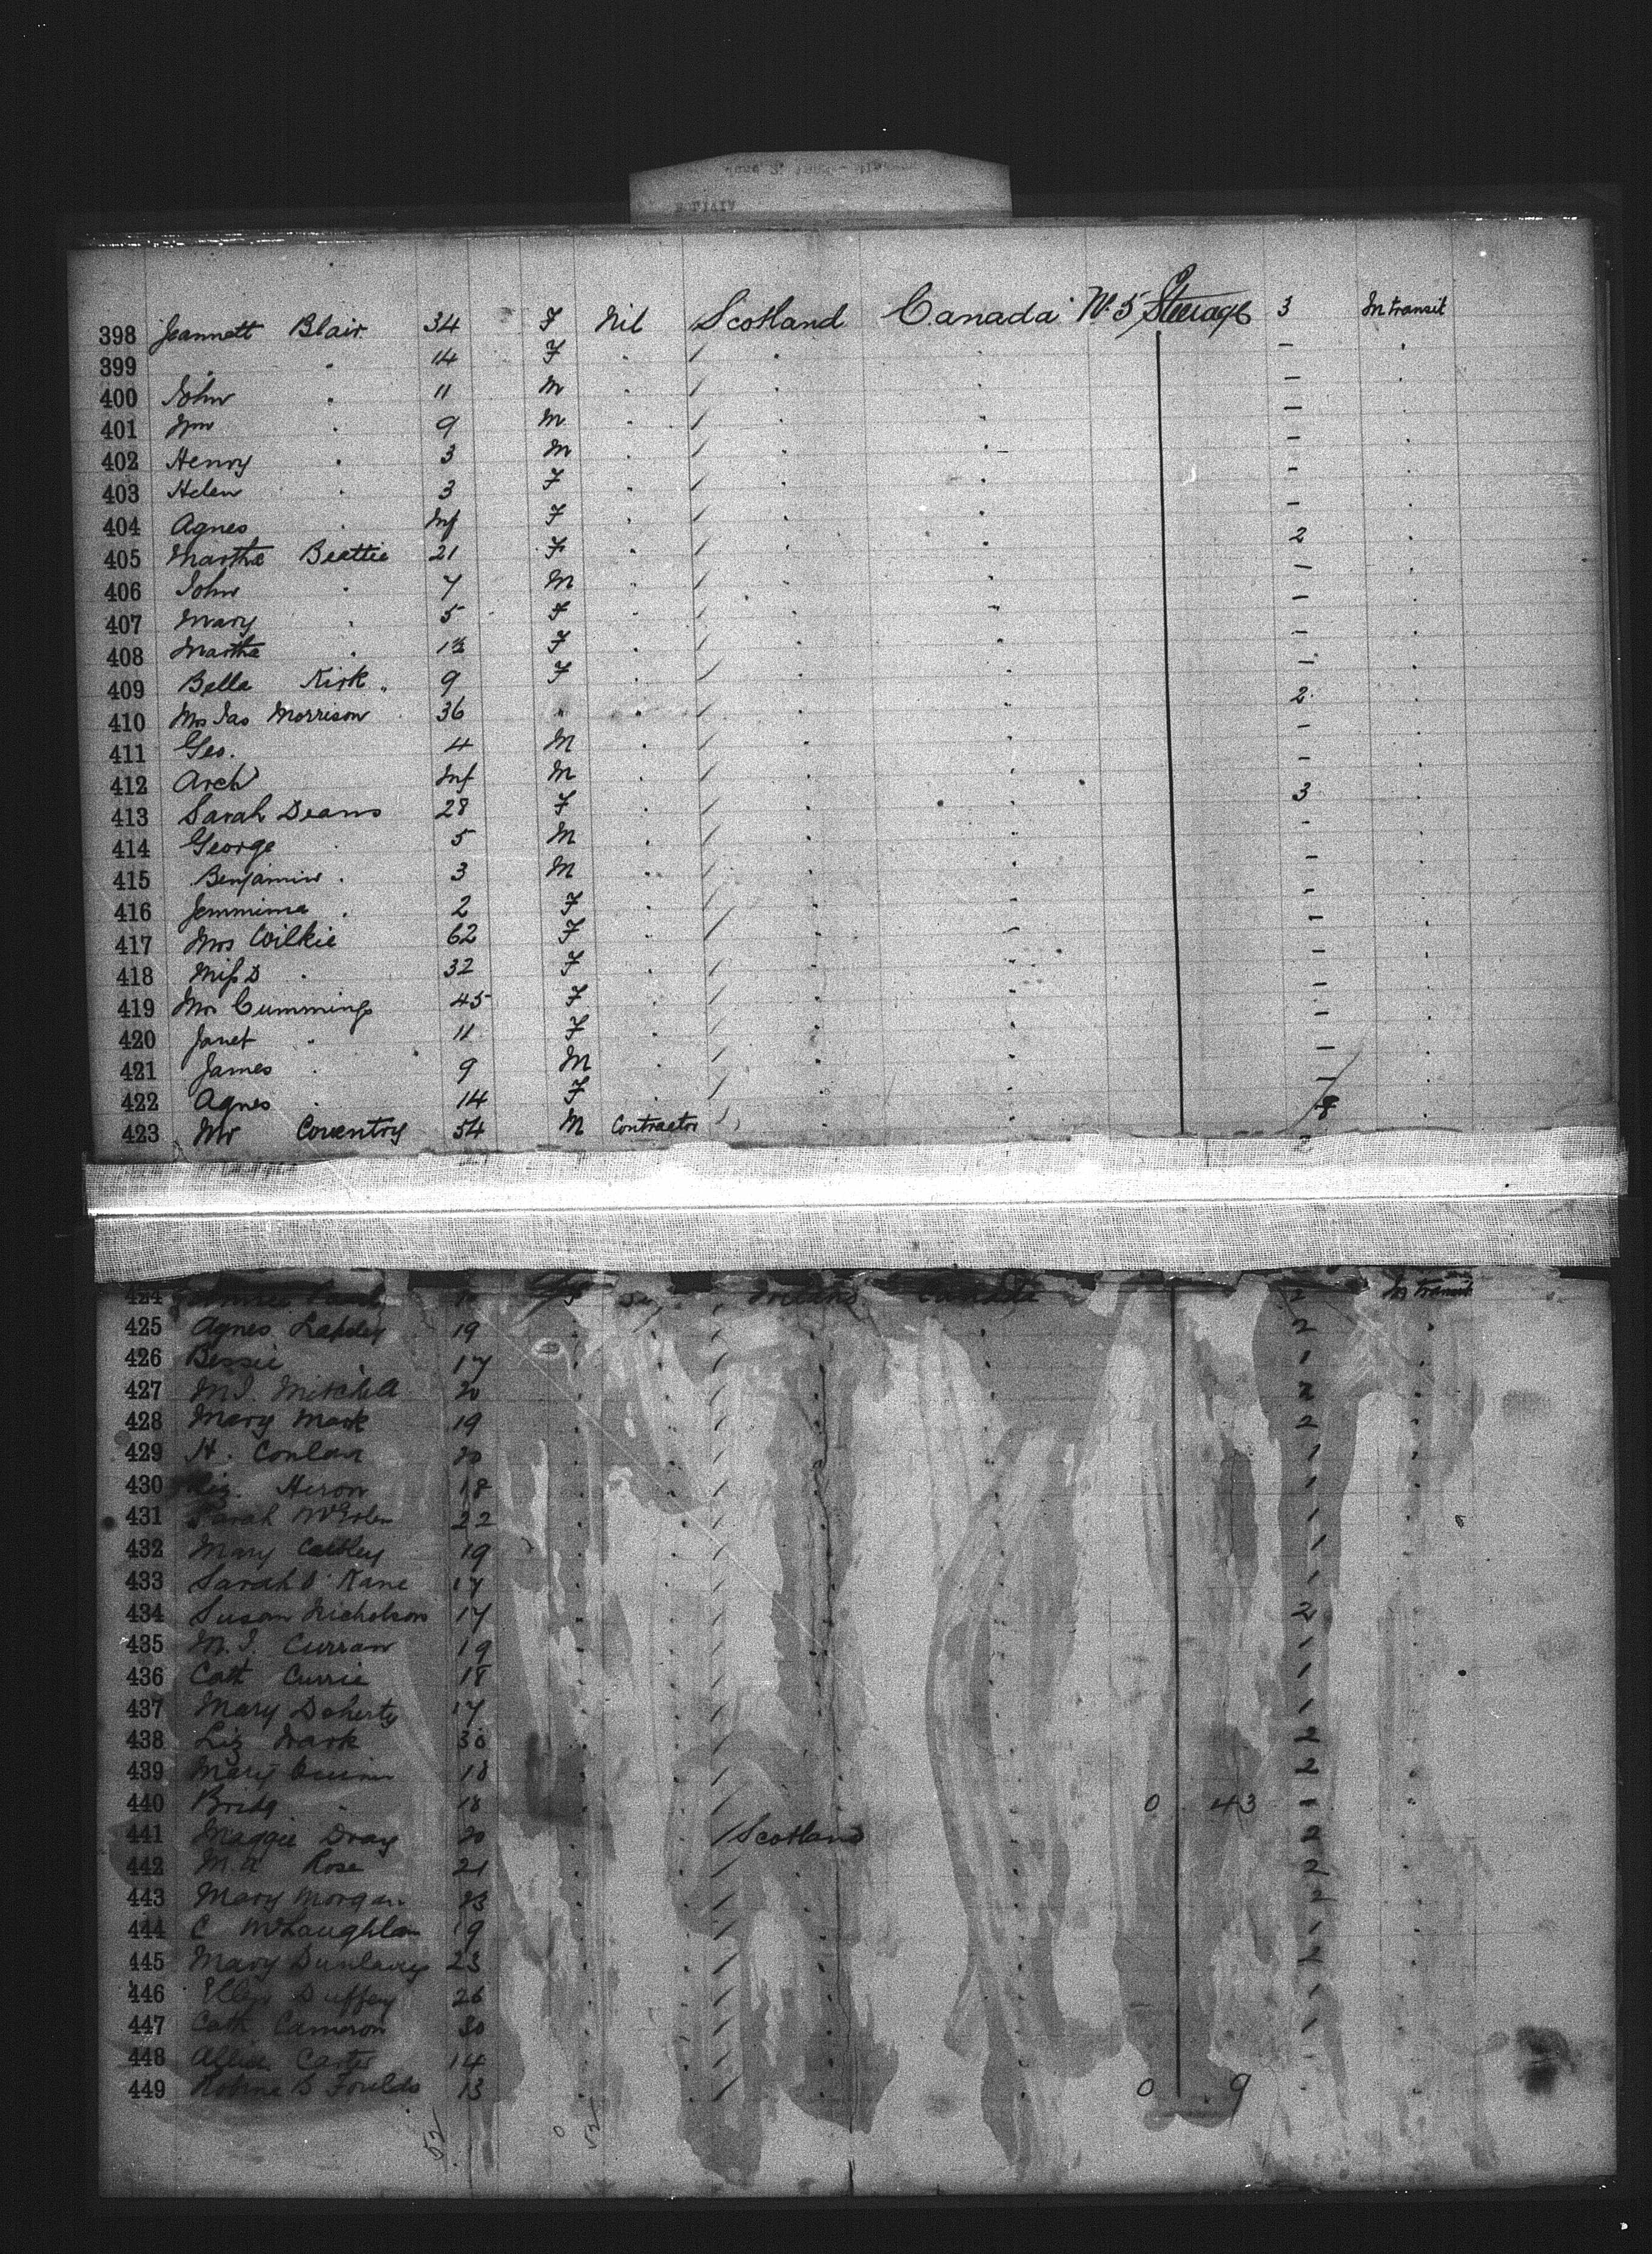 398 Jeannett Blair 34 F Nil Scotland Canada No. 5 Steerage 3 In transit
399 " " 14 F " / " " - "
400 John " 11 M " / " " - "
401 Wm " 9 M " / " " - "
402 Henry " 3 M " / " " - "
403 Helen " 3 F " / " " - "
404 Agnes " Inf F " / " " - "
405 Martha Beattie 21 F " / " " 2 "
406 John " 7 M " / " " - "
407 Mary " 5 F " / " " - "
408 Martha " 1½ F " / " " - "
409 Bella Kirk 9 F " / " " - "
410 Mrs Jas Morrison 36 " " / " " 2 "
411 Geo. 4 M " / " " - "
412 Arch Inf M " / " " - "
413 Sarah Deans 28 F " / " " 3 "
414 George " 5 M " / " " - "
415 Benjamin " 3 M " / " " - "
416 Jemmima " 2 F " / " " - "
417 Mrs Wilkie 62 F " / " " - "
418 Miss D " 32 F " / " " - "
419 Mrs Cummings 45 F " / " " - "
420 Janet " 11 F " / " " - "
421 James " 9 M " / " " - "
422 Agnes " 14 F " / " " - "
423 Mr Coventry 54 M Contractor / " " 8 "
424 In transit
425 Agnes 19 " " / " " 2 "
426 Bessie " 17 " " / " " 1 "
427 M.J. Mitchell 20 " " / " " 2 "
428 Mary Mark 19 " " / " " 2 "
429 H. Conlan 20 " " / " " 1 "
430 Liz. Heron 18 " " / " " 1 "
431 Sarah 22 " " / " " 1
432 Mary 19 " " / " " 1 "
433 Sarah O'Kane 17 " " / " " 1 "
434 Susan Nicholson 17 " " / " " 2 "
435 M.J. Curran 19 " " / " " 1 "
436 Cath Currie 18 " " / " " 1 "
437 Mary Doherty 17 " " / " " 1 "
438 Liz Mark 30 " " / " " 2 "
439 Mary Quinn 18 " " / " " 2 "
440 Bridg " 18 " " / " " 0 43 - "
441 Maggie Dray 20 " " / Scotland " 2 "
442 M.A Rose 21 " " / " " 2 "
443 Mary Morgan 23 " " / " " 2 "
444 C McLaughlan 19 " " / " " 1 "
445 Mary Dunlavey 23 " " / " " 2 "
446 Ellen Duffey 26 " " / " " 1 "
447 Cath Cameron 30 " " / " " 1 "
448 Carter 14 " " / " " - "
449 B Foulds 13 " " / " " 0 9 - "
52 0 52